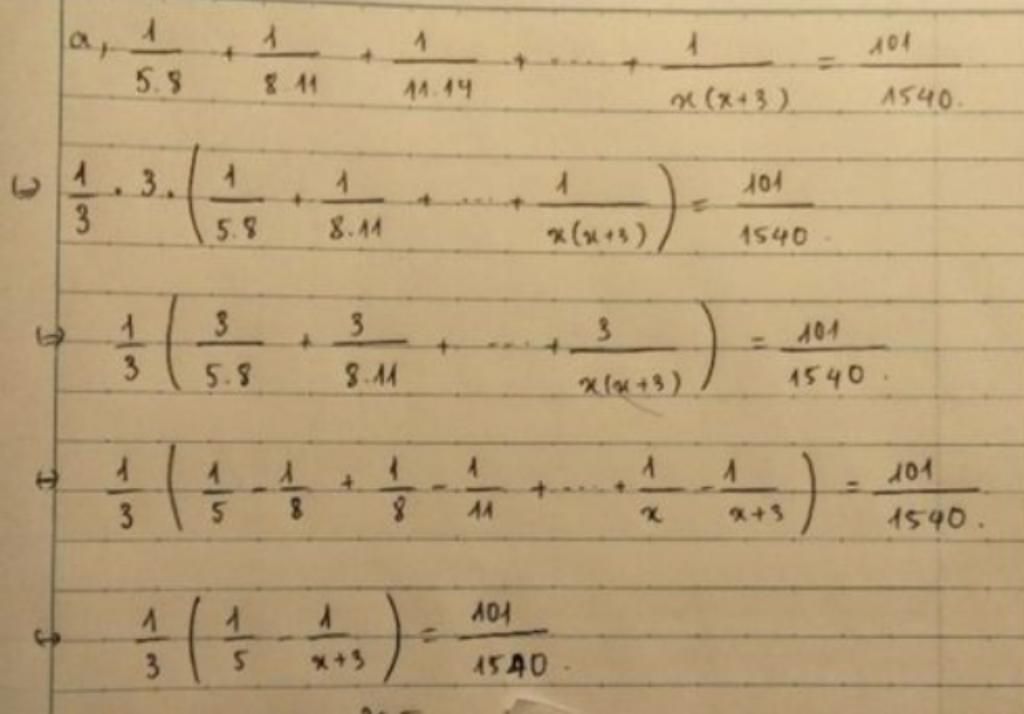 a, 1/5.8 + 1/8.11 + 1/11.14 + ..... + 1/x(x+3) = 101/1540.
1/3 . 3 . (1/5.8 + 1/8.11 + ..... + 1/x(x+3)) = 101/1540.
1/3 (3/5.8 + 3/8.11 + ..... + 3/x(x+3)) = 101/1540.
1/3 (1/5 - 1/8 + 1/8 - 1/11 + ..... + 1/x - 1/x+3) = 101/1540.
1/3 (1/5 - 1/x+3) = 101/1540.